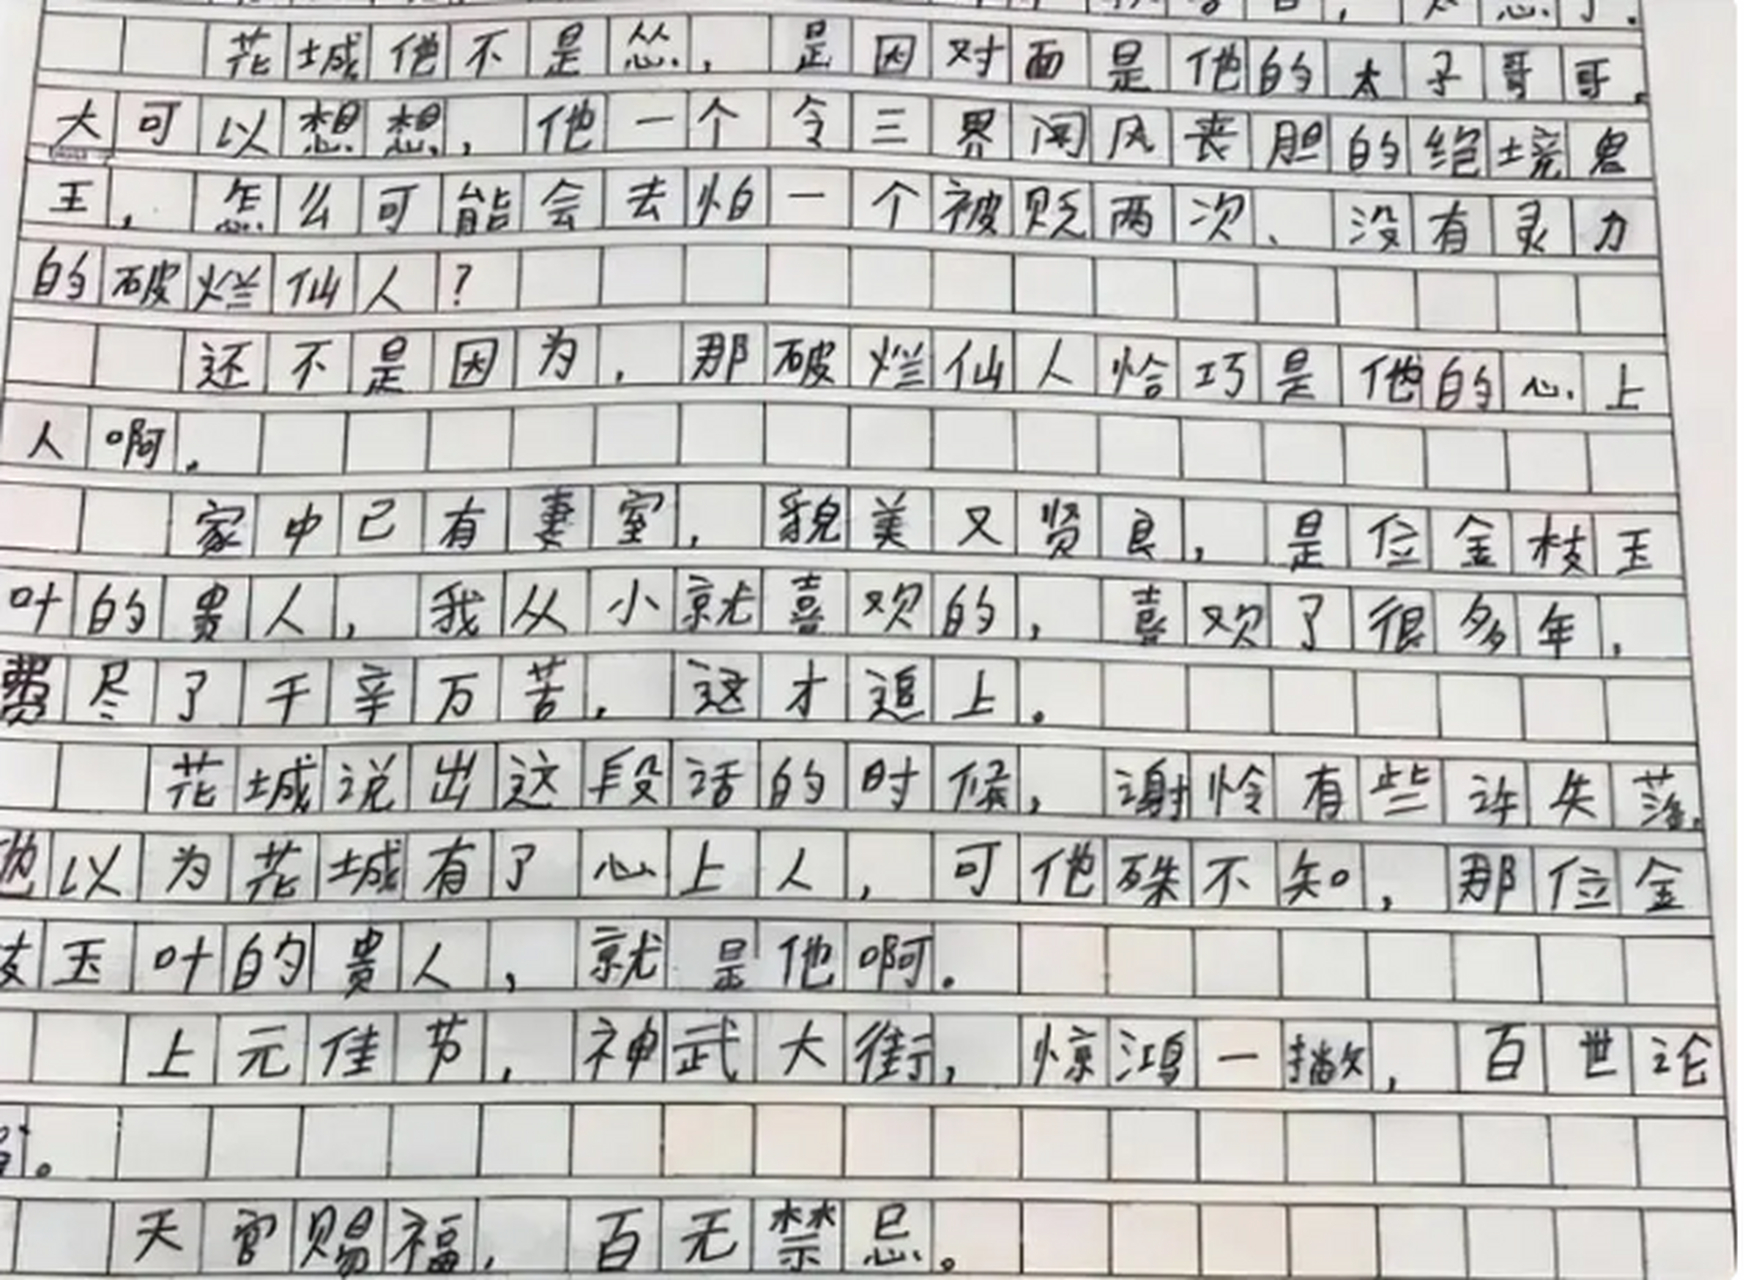 花城他不是怂，是因对面是他的太子哥哥。
大可以想想，他一个令三界闻风丧胆的绝境鬼
王，怎么可能会去怕一个被贬两次、没有灵力
的破烂仙人？
还不是因为，那破烂仙人恰巧是他的心上
人啊。
家中已有妻室，貌美又贤良，是位金枝玉
叶的贵人，我从小就喜欢的，喜欢了很多年，
费尽了千辛万苦，这才追上。
花城说出这段话的时候，谢怜有些许失落，
他以为花城有了心上人，可他殊不知，那位金
枝玉叶的贵人，就是他啊。
上元佳节，神武大街，惊鸿一撇，百世论
。
天官赐福，百无禁忌。